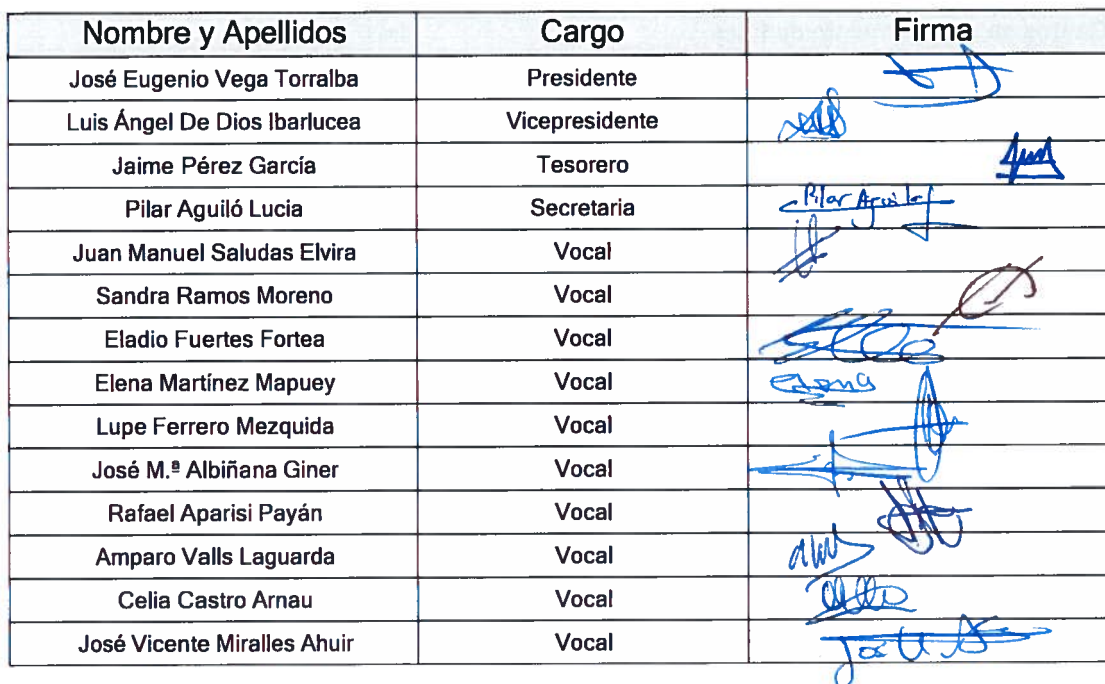 Nombre y Apellidos Cargo Firma
José Eugenio Vega Torralba Presidente
Luis Ángel De Dios Ibarlucea Vicepresidente
Jaime Pérez García Tesorero
Pilar Aguiló Lucia Secretaria Pilar Aguiló
Juan Manuel Saludas Elvira Vocal
Sandra Ramos Moreno Vocal
Eladio Fuertes Fortea Vocal
Elena Martínez Mapuey Vocal Elena
Lupe Ferrero Mezquida Vocal
José M.ª Albiñana Giner Vocal
Rafael Aparisi Payán Vocal
Amparo Valls Laguarda Vocal
Celia Castro Arnau Vocal
José Vicente Miralles Ahuir Vocal